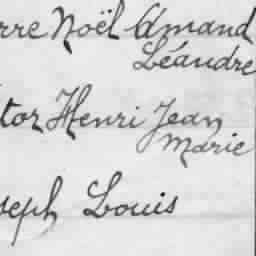 rre Noël Amand
Léandre
tor Henri Jean
Marie
seph Louis